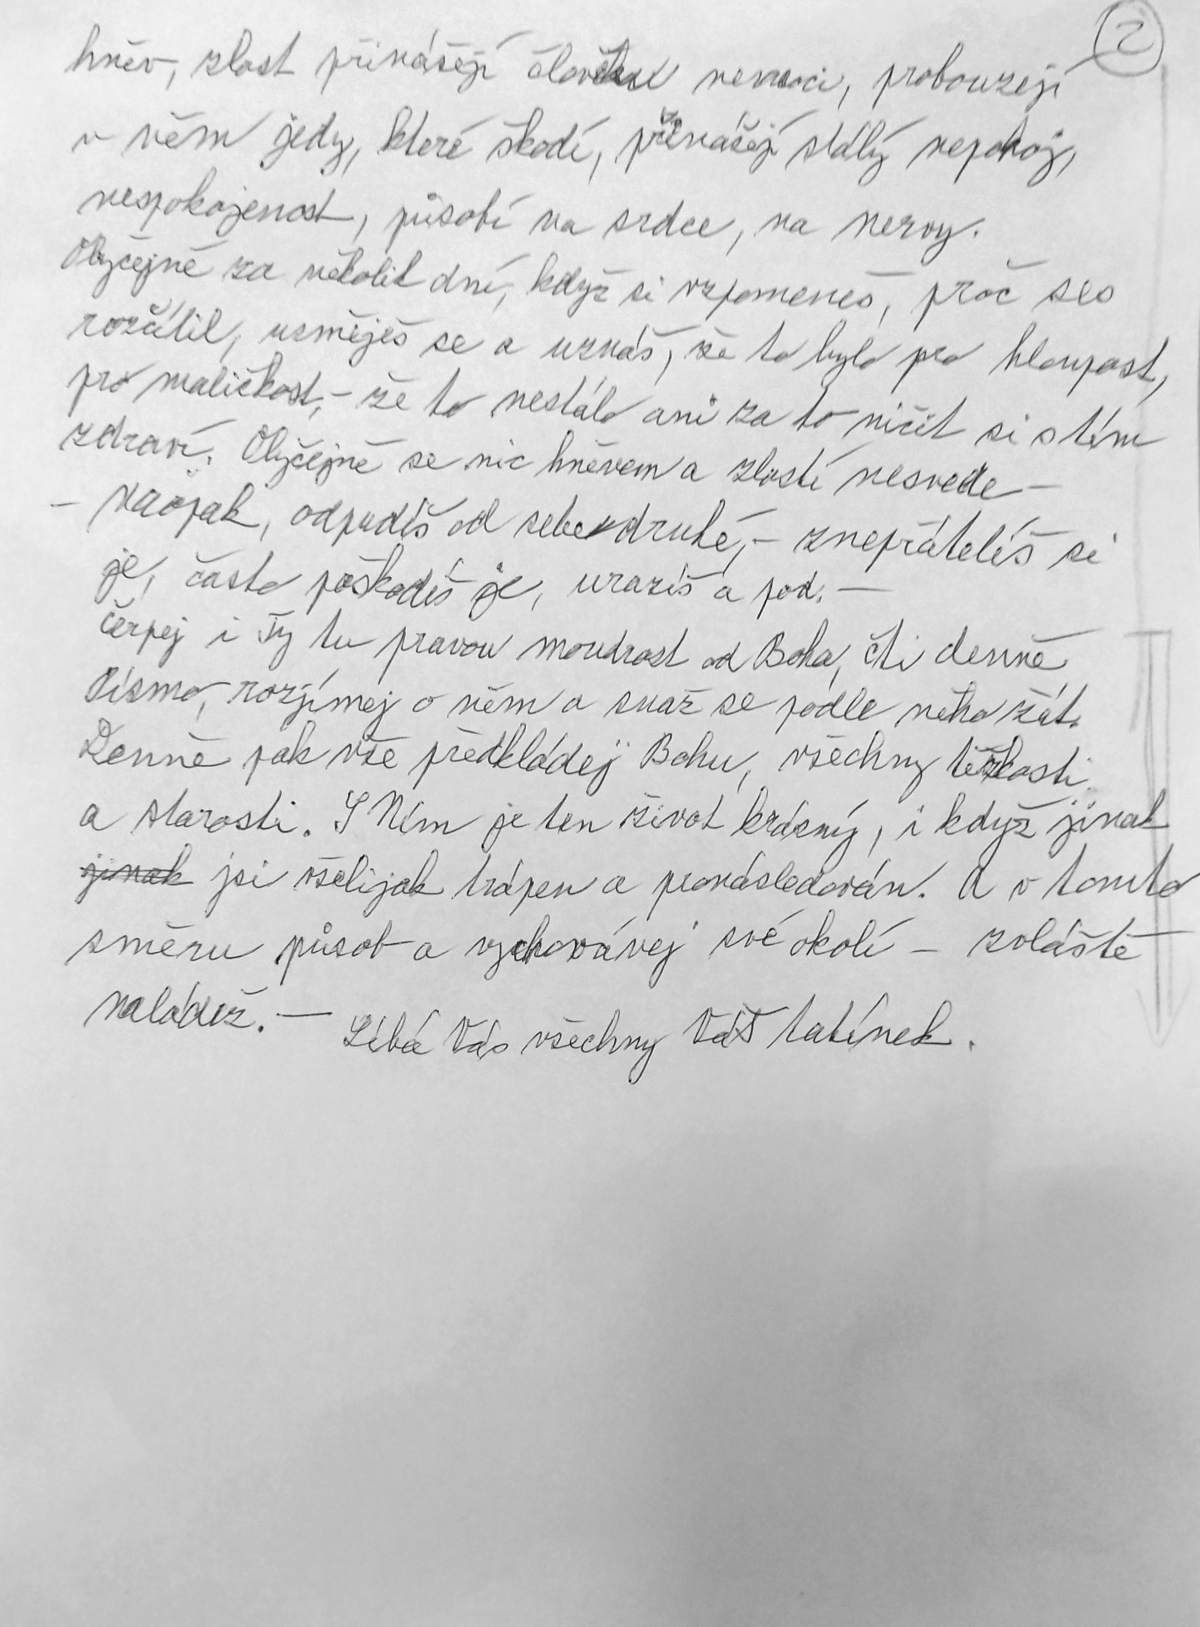 2
hněv, zlost přinášejí člověku nemoci, probouzejí
v něm jedy, které škodí, přinášejí stálý nepokoj,
nespokojenost, působí na srdce, na nervy.
Obyčejně za několik dní, když si vzpomeneš, proč ses
rozčílil, usměješ se a uznáš, že to bylo pro hloupost,
pro maličkost, – že to nestálo ani za to ničit si s tím
zdraví. Obyčejně se nic hněvem a zlostí nesvede –
– naopak, odpudíš od sebe druhé, – znepřátelíš si
je, často poškodíš je, urazíš a pod. –
Čerpej i Ty tu pravou moudrost od Boha, čti denně
Písmo, rozjímej o něm a snaž se podle něho žít.
Denně pak vše předkládej Bohu, všechny těžkosti
a starosti. S Ním je ten život krásný, i když jinak
jinak jsi všelijak trápen a pronásledován. A v tomto
směru působ a vychovávej své okolí – zvláště
mládež. – Líbá Vás všechny Váš tatínek.